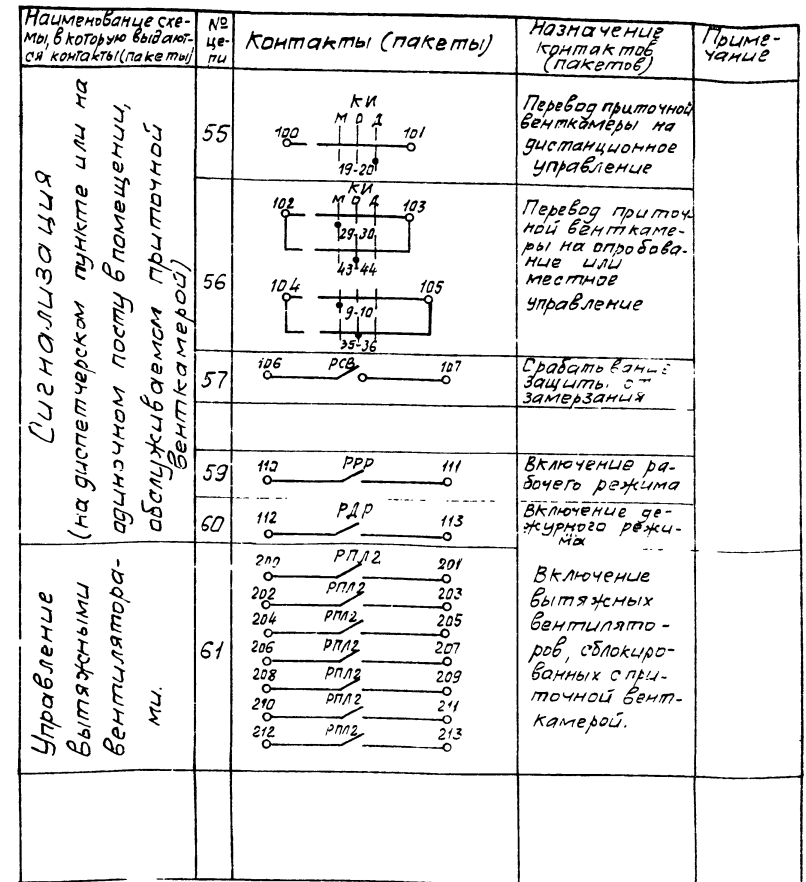 Наименование схе-
мы, в которую выдают-
ся контакты (пакеты)
№
це-
пи
Контакты (пакеты)
Назначение
контактов
(пакетов)
Приме-
чание
Сигнализация
(на диспетчерском пункте или на
одиночном посту в помещении,
обслуживаемом приточной
венткамерой)
55
КИ
М О Д
100 101
19-20
Перевод приточной
венткамеры на
дистанционное
управление
56
КИ
М О Д
102 103
29-30
43-44
104 105
9-10
35-36
Перевод приточ-
ной венткаме-
ры на опробова-
ние или
местное
управление
57
106 РСВ 107
Срабатывание
защиты от
замерзания
59
110 РРР 111
Включение ра-
бочего режима
60
112 РДР 113
Включение де-
журного режи-
ма
Управление
вытяжными
вентилятора-
ми.
61
200 РПЛ2 201
202 РПЛ2 203
204 РПЛ2 205
206 РПЛ2 207
208 РПЛ2 209
210 РПЛ2 211
212 РПЛ2 213
Включение
вытяжных
вентилято-
ров, сблокиро-
ванных с при-
точной вент-
камерой.